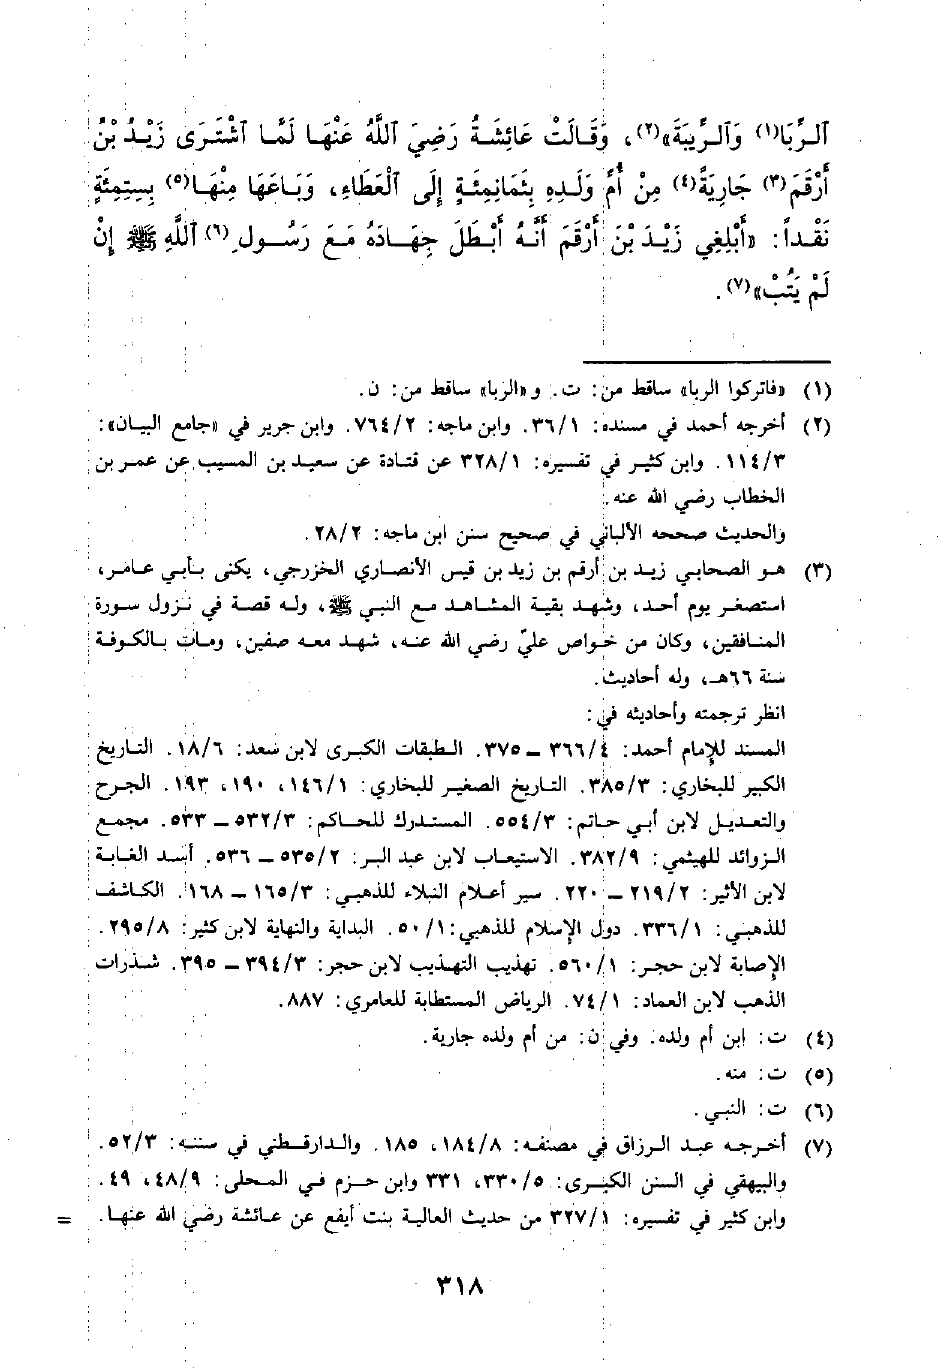 اَلرِّبَا(١) وَاَلرِّيبَةَ»(٢)، وَقَالَتْ عَائِشَةُ رَضِيَ اَللَّهُ عَنْهَا لَمَّا اَشْتَرَى زَيْدُ بْنُ
أَرْقَمَ(٣) جَارِيَةً(٤) مِنْ أُمِّ وَلَدِهِ بِثَمَانِمِئَةٍ إِلَى اَلْعَطَاءِ، وَبَاعَهَا مِنْهَا(٥) بِسِتِمِئَةٍ
نَقْداً: «أَبْلِغِي زَيْدَ بْنَ أَرْقَمَ أَنَّهُ أَبْطَلَ جِهَادَهُ مَعَ رَسُولِ(٦) اَللَّهِ ﷺ إِنْ
لَمْ يَتُبْ»(٧).
(١) «فاتركوا الربا» ساقط من: ت. و«الربا» ساقط من: ن.
(٢) أخرجه أحمد في مسنده: ٣٦/١. وابن ماجه: ٧٦٤/٢. وابن جرير في «جامع البيان»:
١١٤/٣. وابن كثير في تفسيره: ٣٢٨/١ عن قتادة عن سعيد بن المسيب عن عمر بن
الخطاب رضي الله عنه.
والحديث صححه الألباني في صحيح سنن ابن ماجه: ٢٨/٢.
(٣) هو الصحابي زيد بن أرقم بن زيد بن قيس الأنصاري الخزرجي، يكنى بأبي عامر،
استصغر يوم أحد، وشهد بقية المشاهد مع النبي ﷺ، وله قصة في نزول سورة
المنافقين، وكان من خواص عليّ رضي الله عنه، شهد معه صفين، ومات بالكوفة
سنة ٦٦هـ، وله أحاديث.
انظر ترجمته وأحاديثه في:
المسند للإمام أحمد: ٣٦٦/٤ ــ ٣٧٥. الطبقات الكبرى لابن سعد: ١٨/٦. التاريخ
الكبير للبخاري: ٣٨٥/٣. التاريخ الصغير للبخاري: ١٤٦/١، ١٩٠، ١٩٣. الجرح
والتعديل لابن أبي حاتم: ٥٥٤/٣. المستدرك للحاكم: ٥٣٢/٣ ــ ٥٣٣. مجمع
الزوائد للهيثمي: ٣٨٢/٩. الاستيعاب لابن عبد البر: ٥٣٥/٢ ــ ٥٣٦. أسد الغابة
لابن الأثير: ٢١٩/٢ ــ ٢٢٠. سير أعلام النبلاء للذهبي: ١٦٥/٣ ــ ١٦٨. الكاشف
للذهبي: ٣٣٦/١. دول الإسلام للذهبي: ٥٠/١. البداية والنهاية لابن كثير: ٢٩٥/٨.
الإصابة لابن حجر: ٥٦٠/١. تهذيب التهذيب لابن حجر: ٣٩٤/٣ ــ ٣٩٥. شذرات
الذهب لابن العماد: ٧٤/١. الرياض المستطابة للعامري: ٨٨٧.
(٤) ت: ابن أم ولده. وفي ن: من أم ولده جارية.
(٥) ت: منه.
(٦) ت: النبي.
(٧) أخرجه عبد الرزاق في مصنفه: ١٨٤/٨، ١٨٥. والدارقطني في سننه: ٥٢/٣.
والبيهقي في السنن الكبرى: ٣٣٠/٥، ٣٣١ وابن حزم في المحلى: ٤٨/٩، ٤٩.
وابن كثير في تفسيره: ٣٢٧/١ من حديث العالية بنت أيفع عن عائشة رضي الله عنها. =
٣١٨